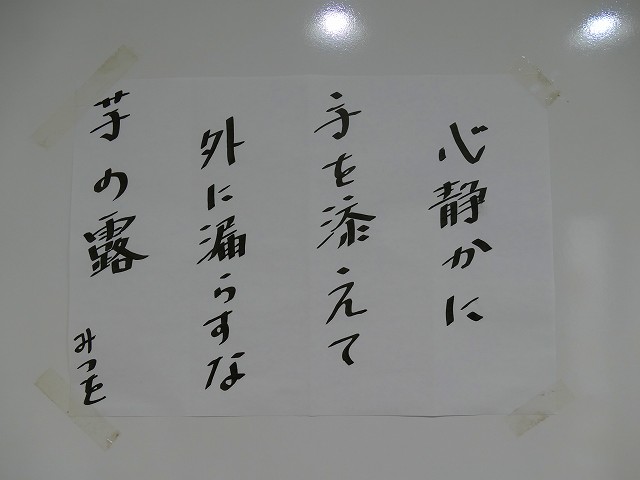 心静かに
手を添えて
外に漏らすな
芋の露
みつを